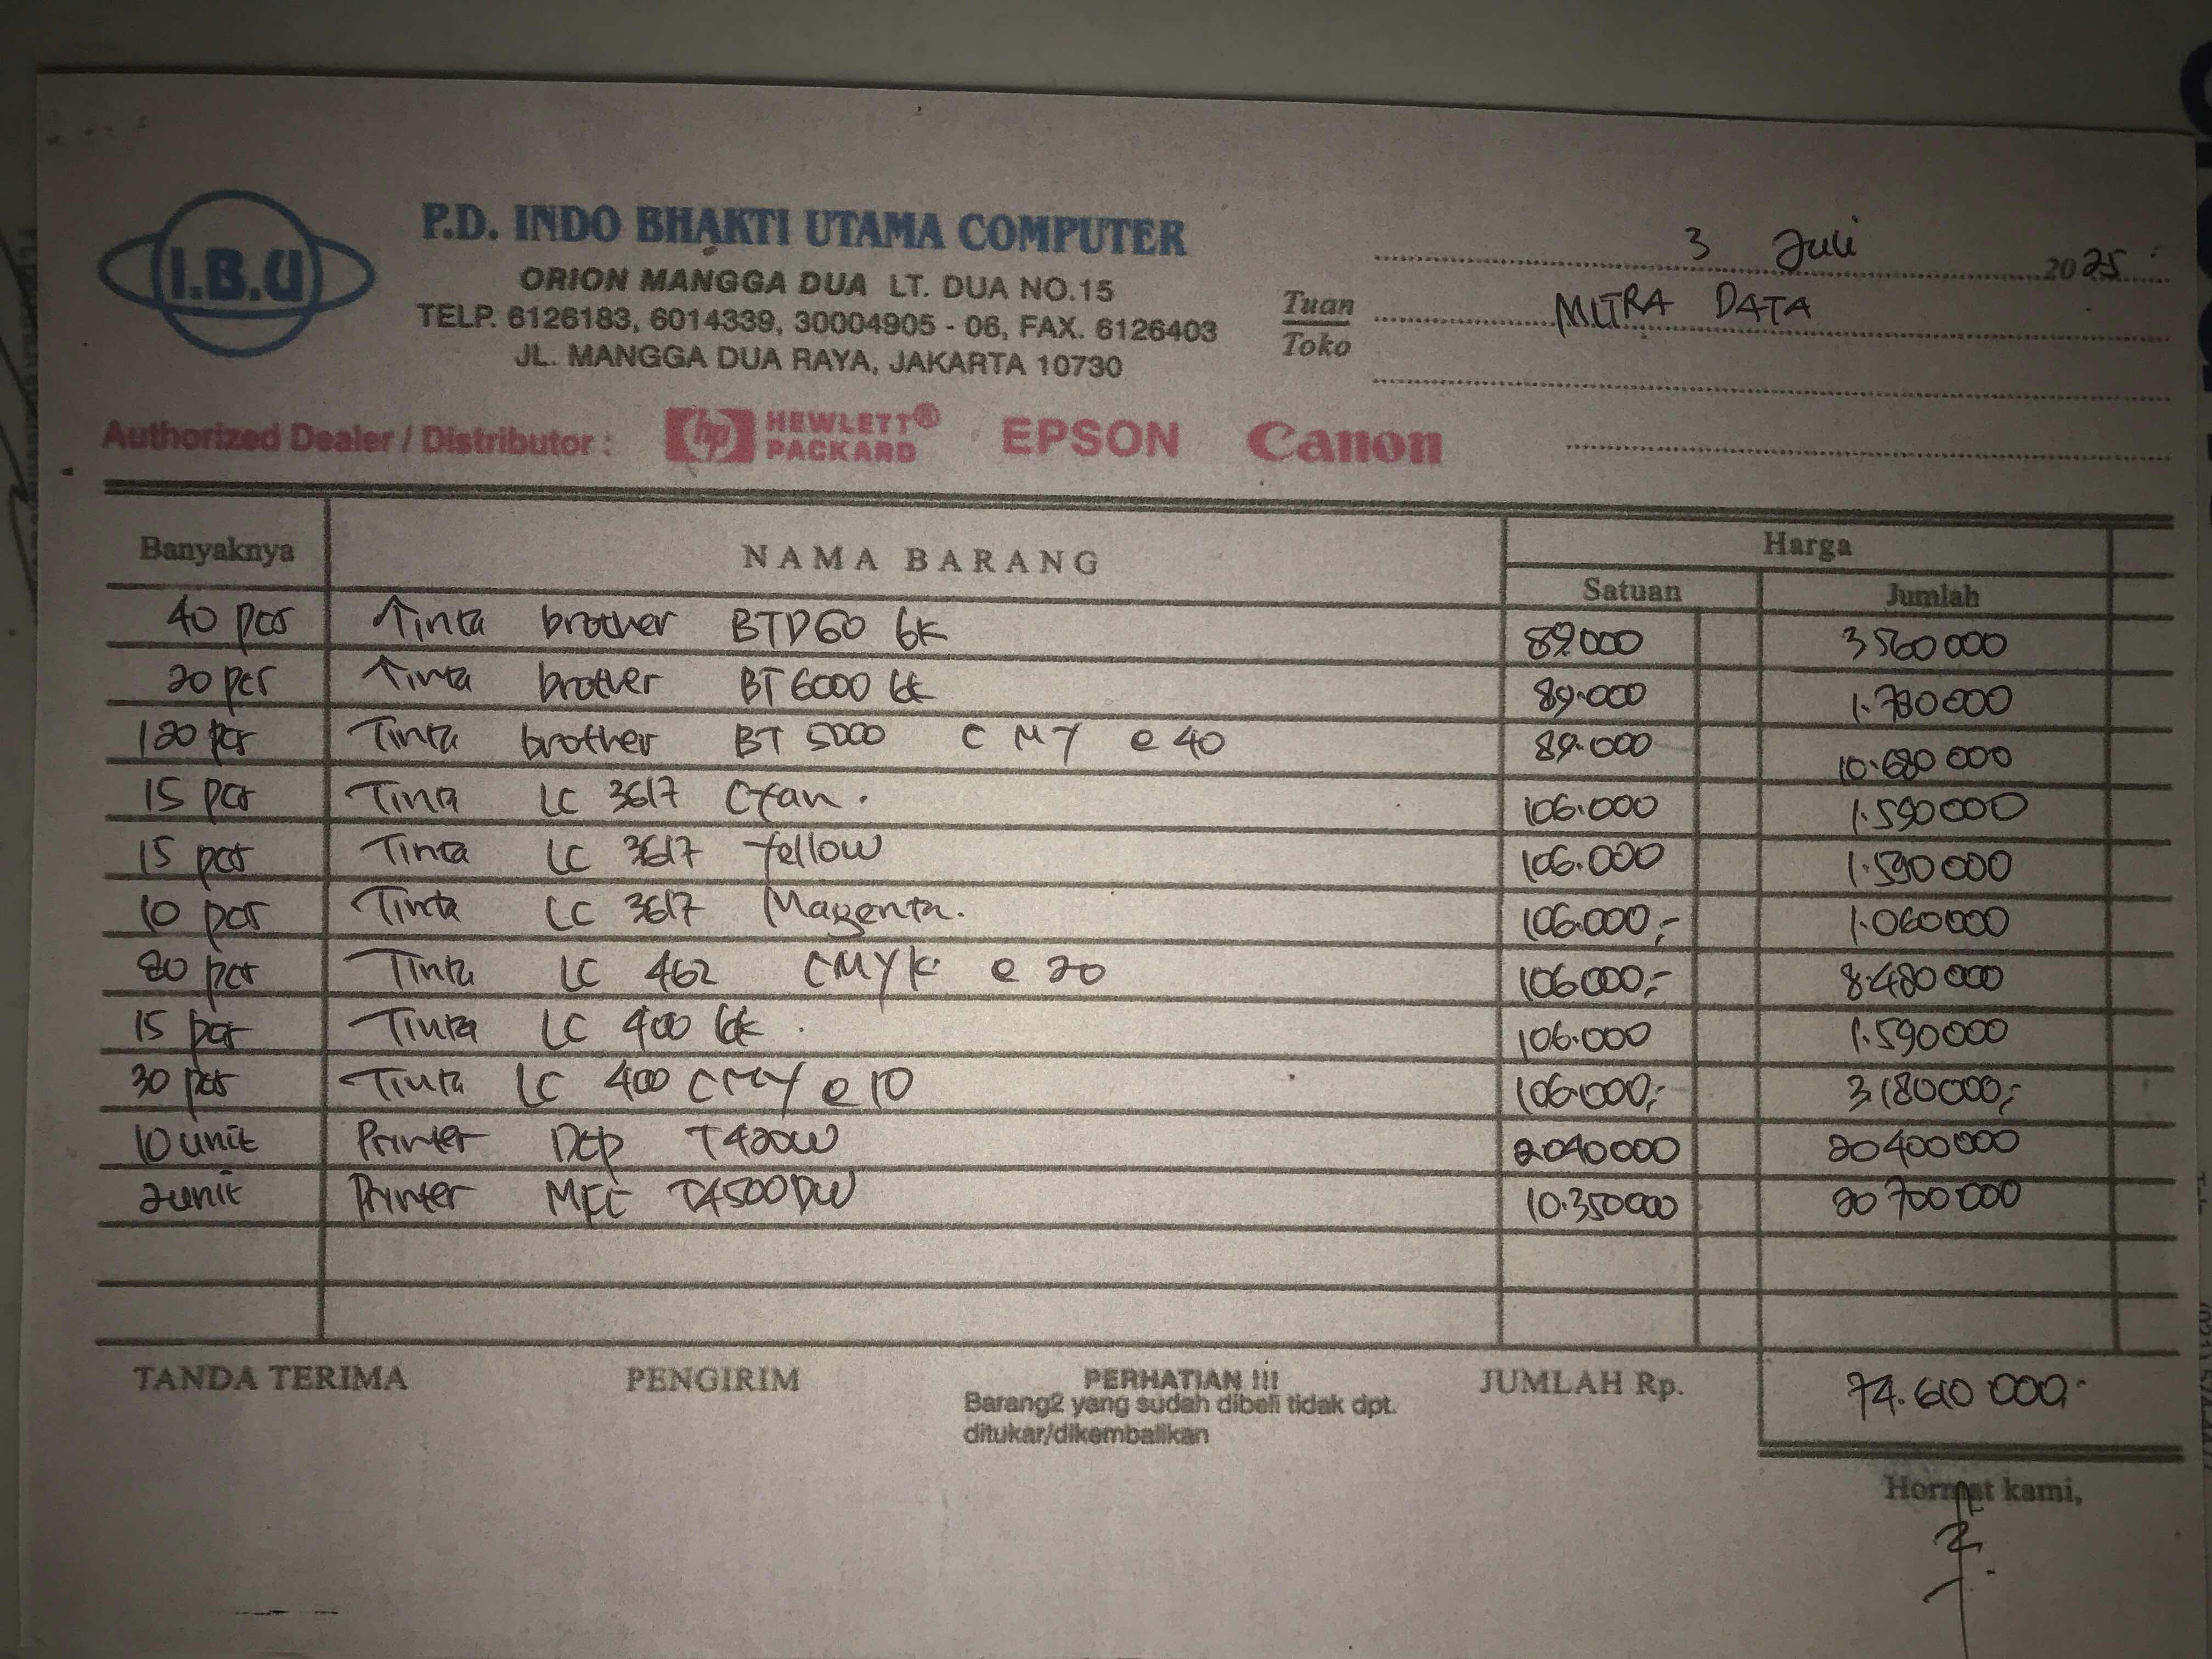 I.B.U
P.D. INDO BHAKTI UTAMA COMPUTER
ORION MANGGA DUA LT. DUA NO.15
TELP. 6126183, 6014339, 30004905 - 06, FAX. 6126403
JL. MANGGA DUA RAYA, JAKARTA 10730
3 Juli 2025
Tuan
Toko
MITRA DATA
Authorized Dealer / Distributor : hp HEWLETT® PACKARD EPSON Canon
Banyaknya NAMA BARANG Harga
Satuan Jumlah
40 pcs Tinta brother BTD60 bk 89.000 3560000
20 pcs Tinta brother BT6000 bk 89.000 1.780000
120 pcs Tinta brother BT 5000 C M Y @ 40 89.000 10.680000
15 pcs Tinta LC 3617 Cyan. 106.000 1.590000
15 pcs Tinta LC 3617 Yellow 106.000 1.590000
10 pcs Tinta LC 3617 Magenta. 106.000,- 1.060000
80 pcs Tinta LC 462 CMYK @ 20 106000,- 8.480000
15 pcs Tinta LC 400 bk. 106.000 1.590000
30 pcs Tinta LC 400 CMY @ 10 106.000,- 3.180000,-
10 unit Printer Dcp T420W 2040000 20400000
2 unit Printer MFC T4500DW 10.350000 20700000
TANDA TERIMA PENGIRIM PERHATIAN !!! JUMLAH Rp. 74.610000,-
Barang2 yang sudah dibeli tidak dpt.
ditukar/dikembalikan
Hormat kami,